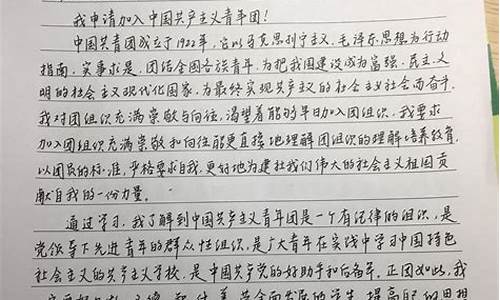 我申请加入中国共产主义青年团!
中国共青团成立于1922年,它以马克思列宁主义、毛泽东思想为行动
指南,实事求是,团结全国各族青年,为把我国建设成为富强、民主、文
明的社会主义现代化国家,为最终实现共产主义的社会主义社会而奋斗。
我对团组织充满崇敬与向往,渴望着能够早日加入团组织。我要求
加入团组织充满崇敬和向往能更直接地理解团组织的理解培养教育,
以团员的标准,严格要求自我,更好地为建社我们伟大的社会主义祖国贡
献自我的一份力量。
通过学习,我了解到中国共产主义青年团是一个有纪律的组织,是
党领导下先进青年的群众性组织,是广大青年在实践中学习中国特色
社会主义的共产主义学校,是中国共产党的好助手和后备军。正因如此,我